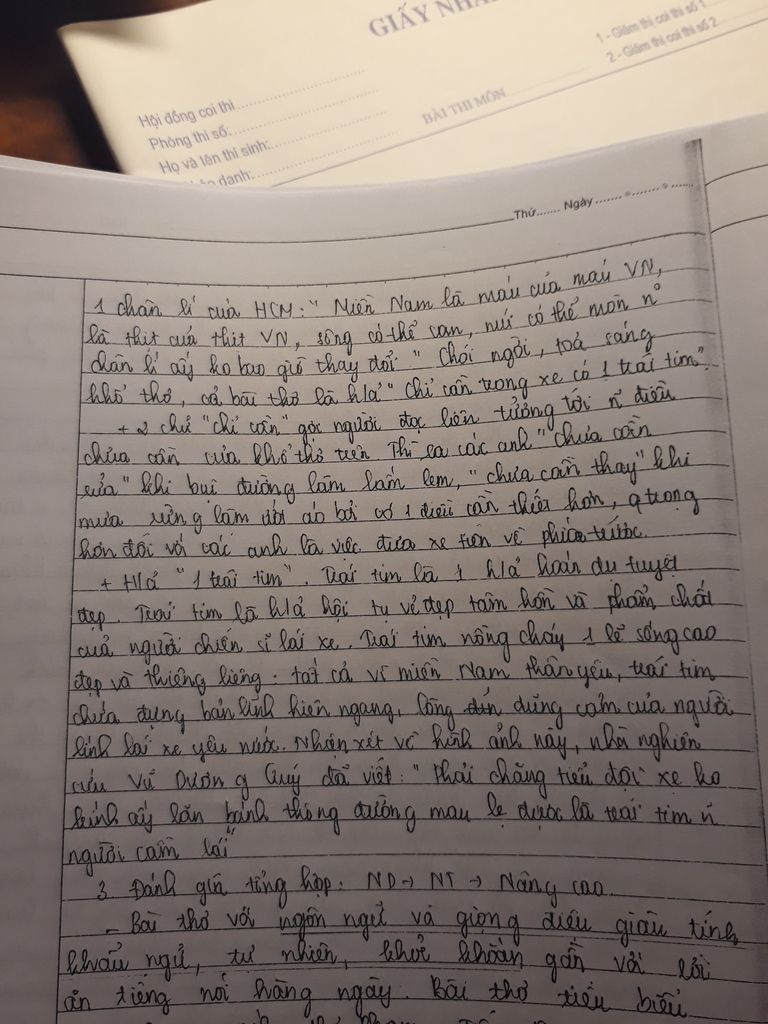 GIẤY NHÁ
1 - Giám thị coi thi số 1
2 - Giám thị coi thi số 2
Hội đồng coi thi
Phòng thi số:
BÀI THI MÔN
Họ và tên thí sinh:
danh:
Thứ....... Ngày
1 chân lí của HCM: "Miền Nam là máu của máu VN,
là thịt của thịt VN, sông có thể cạn, núi có thể mòn n°
chân lí ấy ko bao giờ thay đổi" Chói ngời, toả sáng
khổ thơ, cả bài thơ là h/ả "Chỉ cần trong xe có 1 trái tim".
+ 2 chữ "chỉ cần" gợi người đọc liên tưởng tới n~ điều
chưa cần của khổ thơ trên. Thì ra các anh "chưa cần
rửa" khi bụi đường làm lấm lem, "chưa cần thay" khi
mưa rừng làm ướt áo bởi có 1 điều cần thiết hơn, q trọng
hơn đối với các anh là việc đưa xe tiến về phía trước.
+ H/ả "1 trái tim". Trái tim là 1 h/ả hoán dụ tuyệt
đẹp. Trái tim là h/ả hội tụ vẻ đẹp tâm hồn và phẩm chất
của người chiến sĩ lái xe. Trái tim nồng cháy 1 lẽ sống cao
đẹp và thiêng liêng: tất cả vì miền Nam thân yêu, trái tim
chứa đựng bản lĩnh hiên ngang, lòng dũng cảm của người
lính lái xe yêu nước. Nhận xét về hình ảnh này, nhà nghiên
cứu Vũ Dương Quý đã viết: "Phải chăng tiểu đội xe ko
kính ấy lăn bánh thông đường mau lẹ được là trái tim n~
người cầm lái"
3. Đánh giá tổng hợp: ND → NT → Nâng cao
- Bài thơ với ngôn ngữ và giọng điệu giàu tính
khẩu ngữ, tự nhiên, khoẻ khoắn gắn với lời
ăn tiếng nói hằng ngày. Bài thơ tiêu biểu